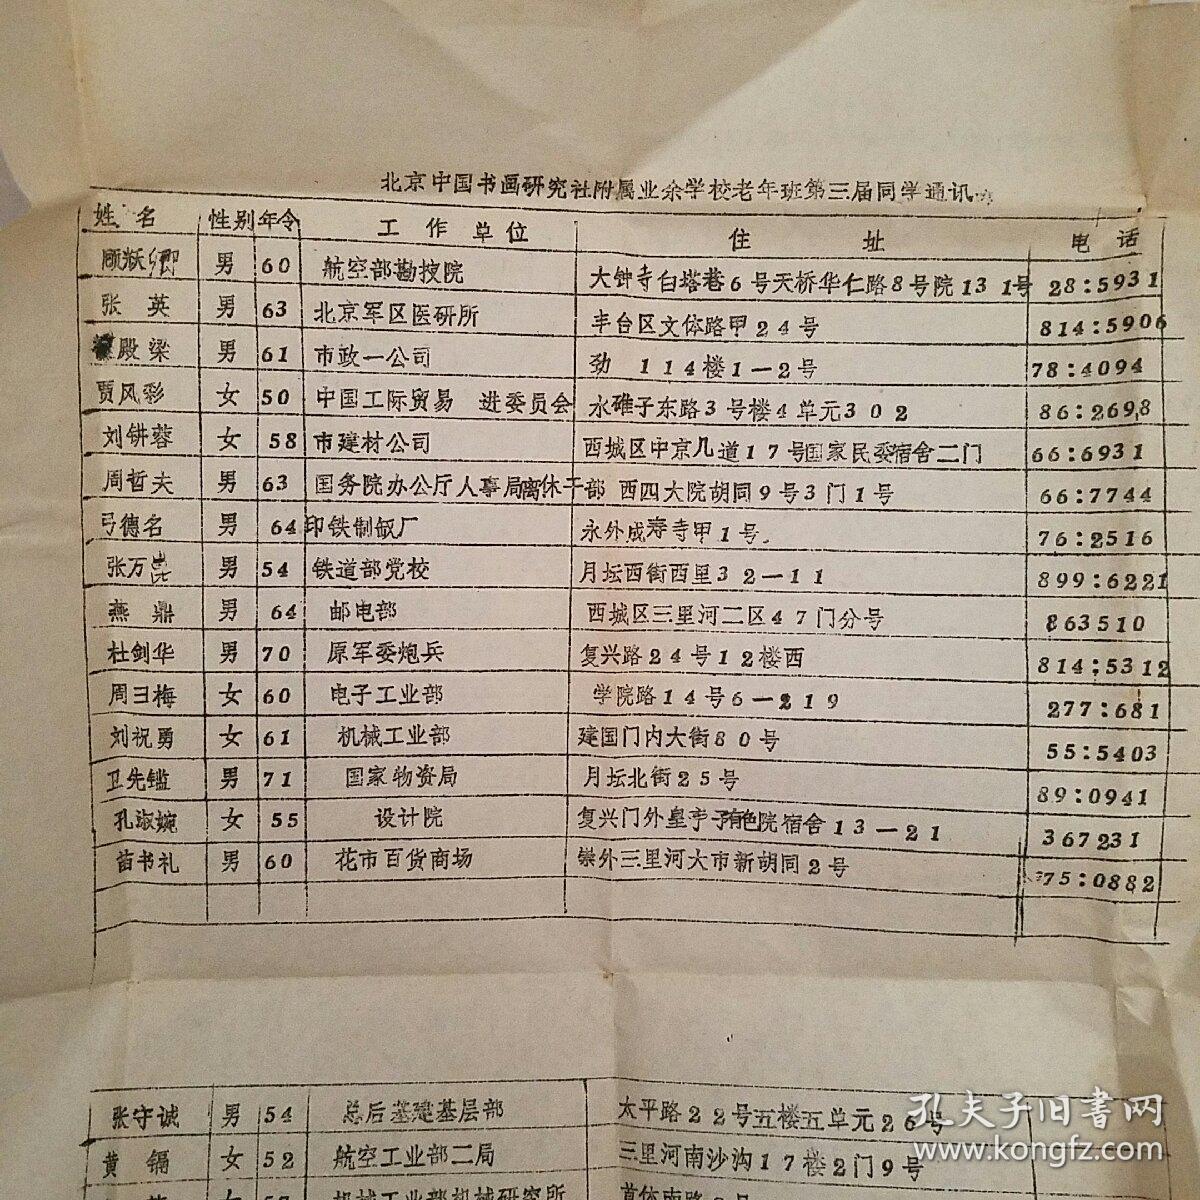 北京中国书画研究社附属业余学校老年班第三届同学通讯
姓 名 性别 年令 工 作 单 位 住 址 电 话
顾 卿 男 60 航空部勘技院 大钟寺白塔巷6号天桥华仁路8号院13 1号 28:5931
张 英 男 63 北京军区医研所 丰台区文体路甲24号 814:5906
殿梁 男 61 市政一公司 劲 114楼1—2号 78:4094
贾风彩 女 50 中国工际贸易 进委员会 水碓子东路3号楼4单元302 86:2698
刘 蓉 女 58 市建材公司 西城区中京几道17号国家民委宿舍二门 66:6931
周哲夫 男 63 国务院办公厅人事局离休干部 西四大院胡同9号3门1号 66:7744
弓德名 男 64 印铁制缻厂 永外成寿寺甲1号 76:2516
张万昆 男 54 铁道部党校 月坛西街西里32—11 899:6221
燕 鼎 男 64 邮电部 西城区三里河二区47门分号 863510
杜剑华 男 70 原军委炮兵 复兴路24号12楼西 814:5312
周彐梅 女 60 电子工业部 学院路14号6—219 277:681
刘祝勇 女 61 机械工业部 建国门内大街80号 55:5403
卫先镒 男 71 国家物资局 月坛北街25号 89:0941
孔淑婉 女 55 设计院 复兴门外皇亭子有色院宿舍13—21 367231
苗书礼 男 60 花市百货商场 崇外三里河大市新胡同2号 75:0882
张守诚 男 54 总后基建基层部 太平路22号五楼五单元26号
黄 镉 女 52 航空工业部二局 三里河南沙沟17楼2门9号
机械工业部机械研究所 首体南路2号
孔夫子旧書网
www.kongfz.com